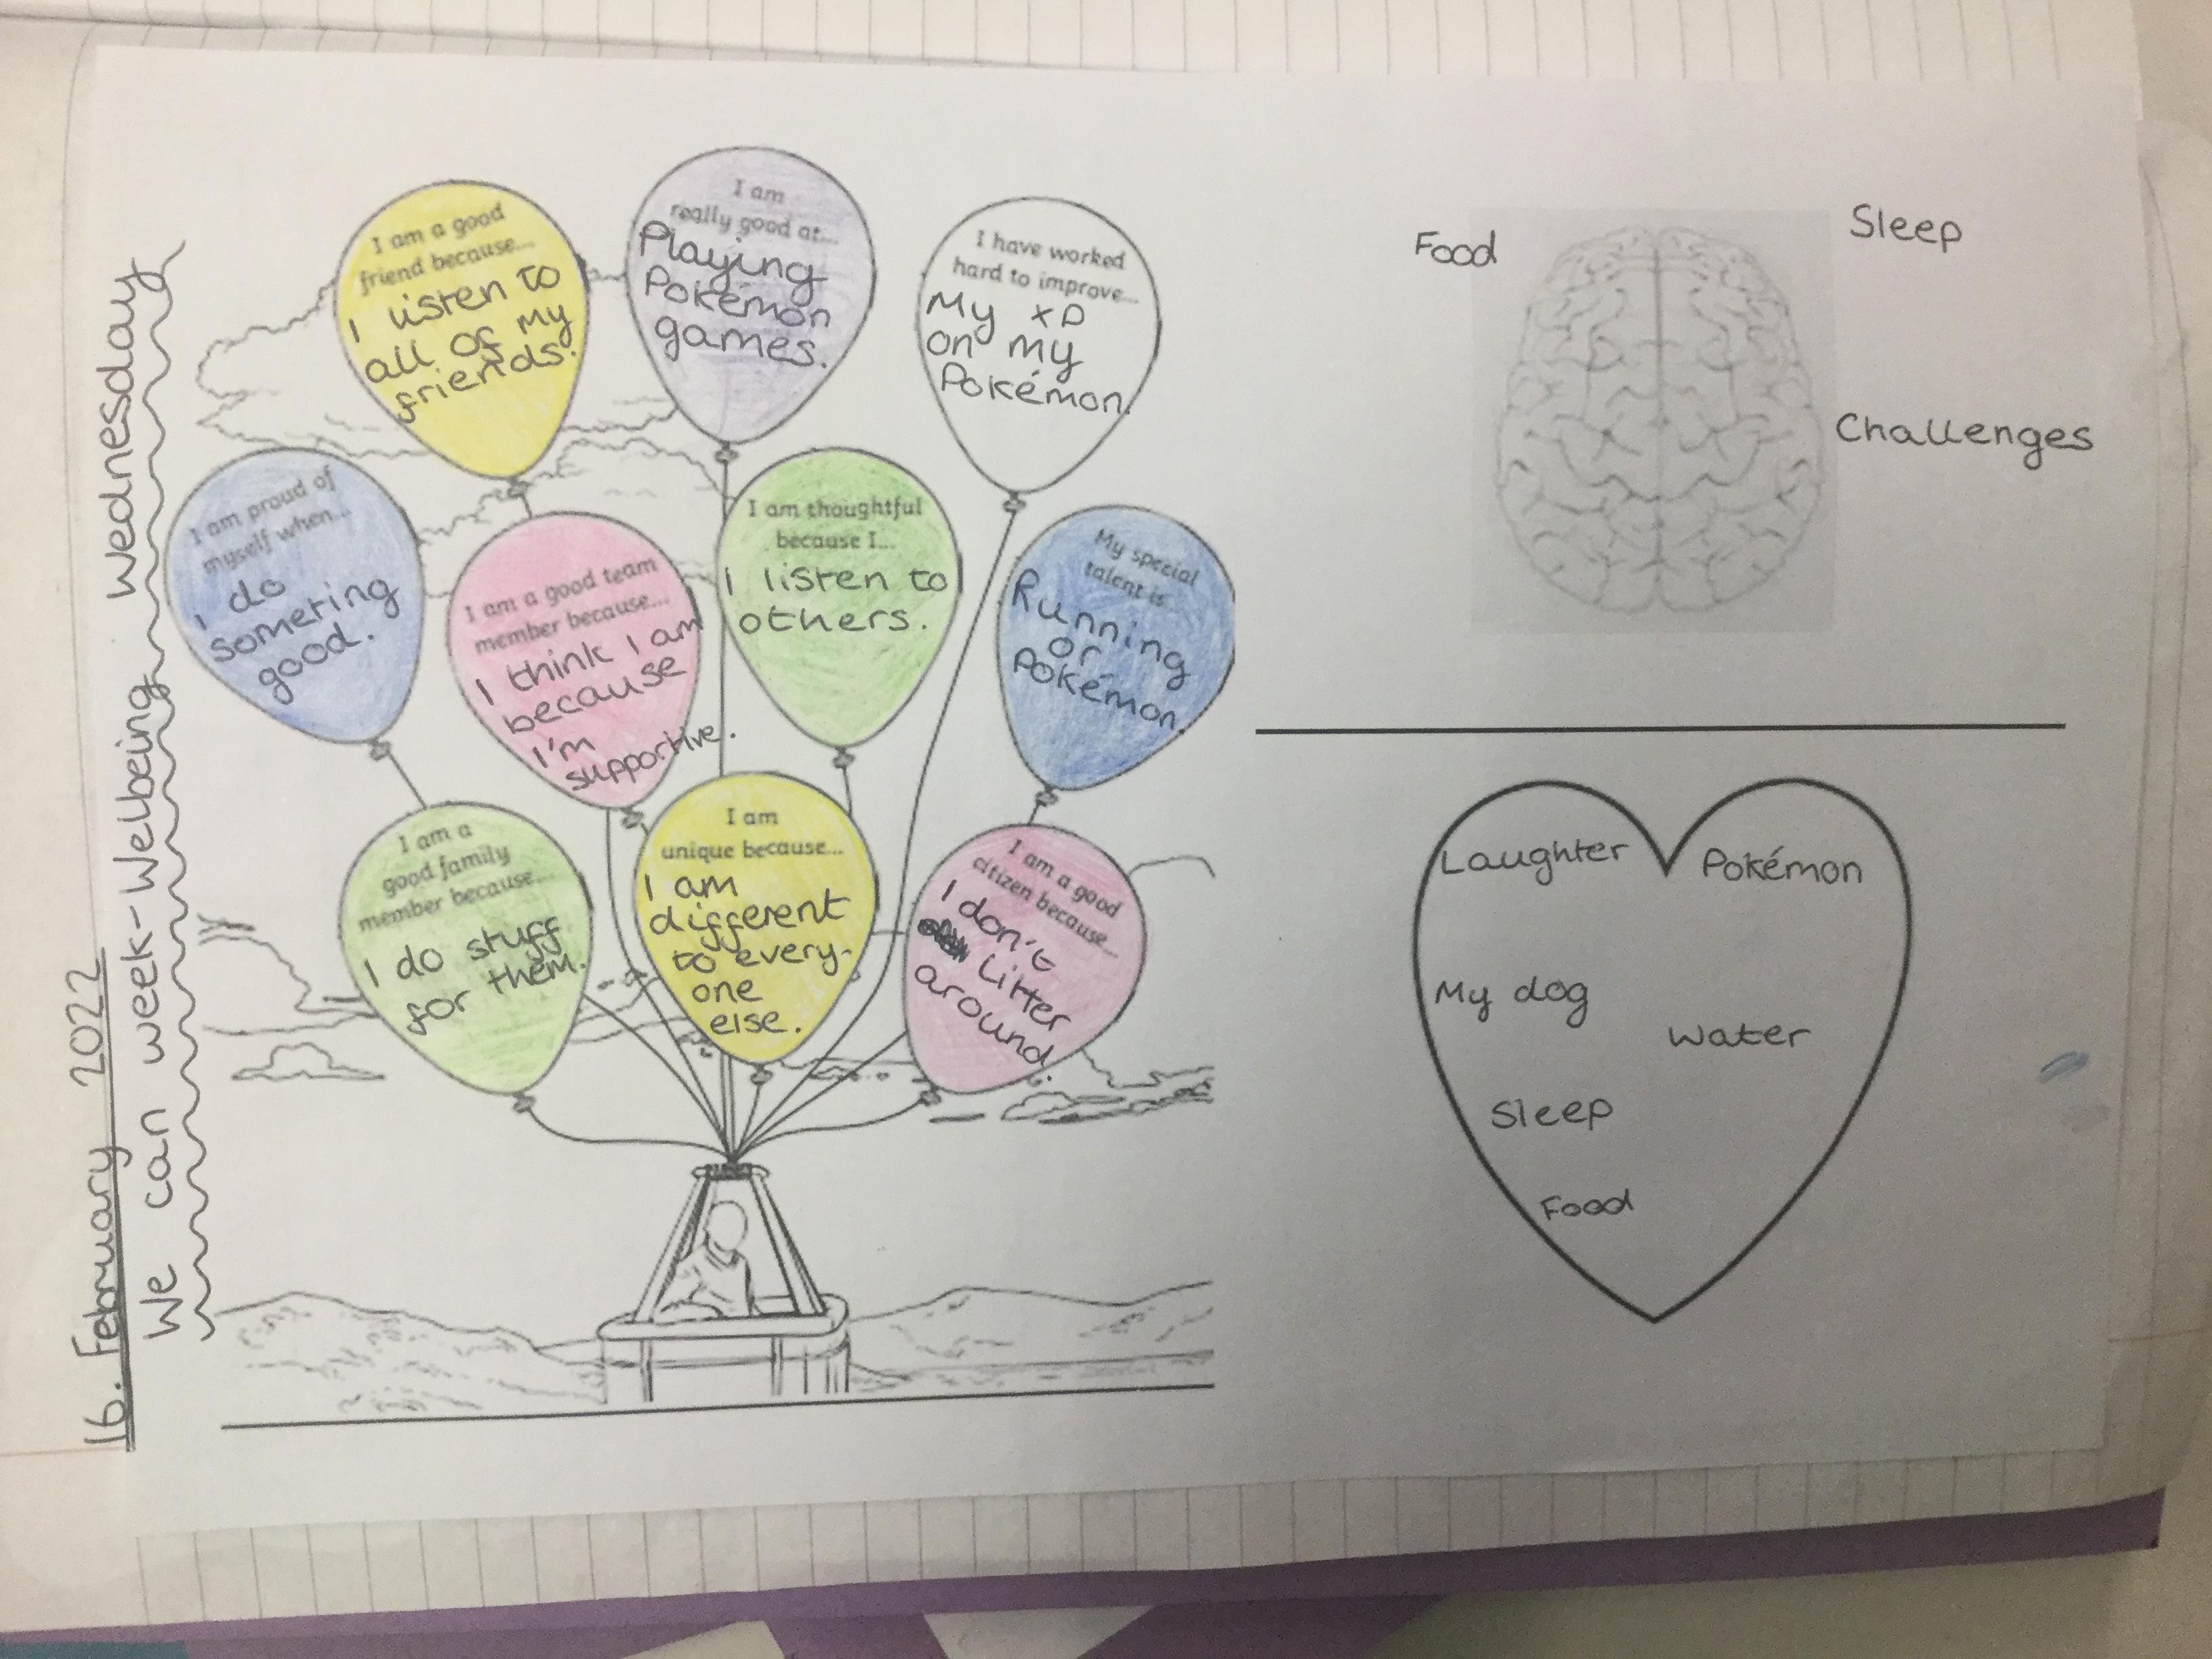 16. February 2022
We can week-Welbeing Wednesday
I am a good
friend because...
I listen to
all of my
friends.
I am
really good at...
Playing
Pokémon
games.
I have worked
hard to improve...
My xp
on my
Pokémon.
I am proud of
myself when...
I do
someting
good.
I am a good team
member because...
I think I am
because
I'm
supportive.
I am thoughtful
because I...
I listen to
others.
My special
talent is...
Running
or
Pokémon.
I am a
good family
member because...
I do stuff
for them.
I am
unique because...
I am
different
to every-
one
else.
I am a good
citizen because...
I don't
litter
around.
Food
Sleep
Challenges
Laughter
Pokémon
My dog
water
Sleep
Food